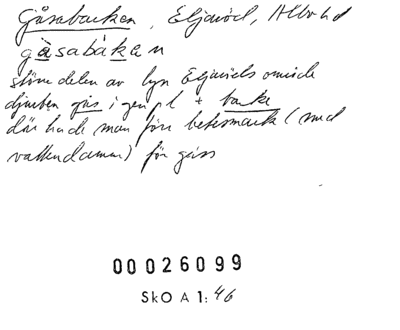 Gåsabacken, Eljaröd, Albo hd
gåsabakan
större delen av byn Eljaröds område
djurben. gås i gen pl + backe
där hade man förr betesmark (med
vattendamm) för gäss
00026099
SkO A 1:46